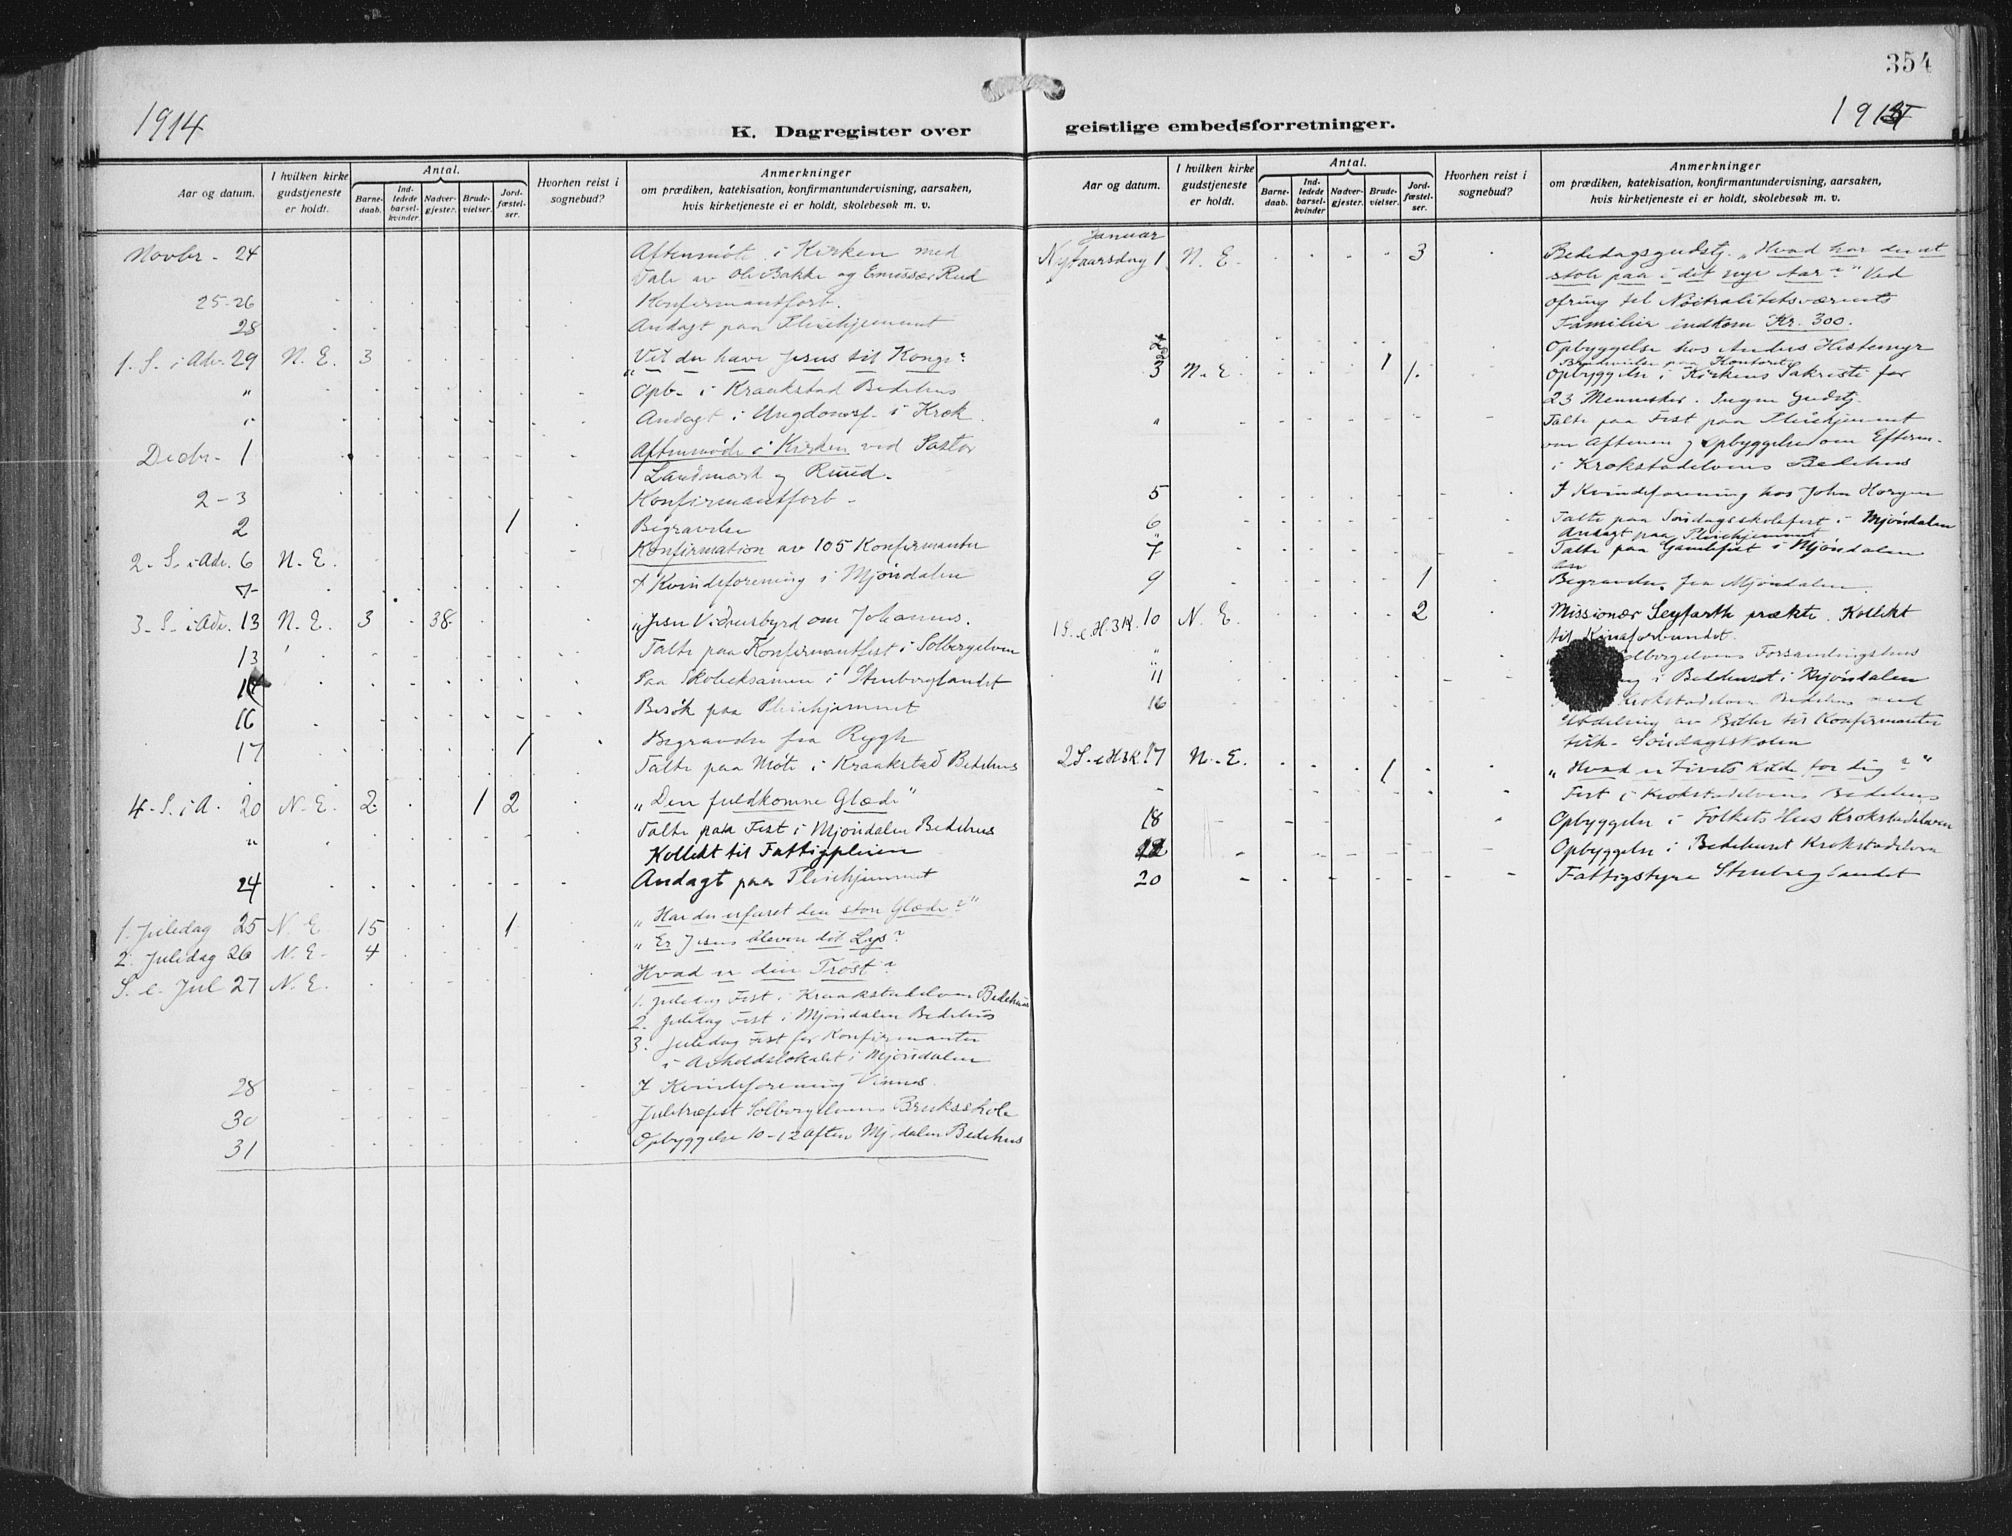 354
1914
K. Dagregister over geistlige embedsforretninger.
1915
Aar og datum.
I hvilken kirke gudstjeneste er holdt.
Antal.
Barne-daab.
Ind-ledede barsel-kvinder.
Nadver-gjester.
Brude-vielser.
Jord-fæstel-ser.
Hvorhen reist i sognebud?
Anmerkninger
om prædiken, katekisation, konfirmantundervisning, aarsaken,
hvis kirketjeneste ei er holdt, skolebesøk m. v.
Novbr - 24 Aftenmøte i Kirken med
Tale av Ole Bakke og Rud
25-26 Konfirmantforb.
28 Andagt paa Pleiehjemmet
1. S. i Adv. 29 N. E. 3 "Vil du have Jesus til Konge?
" Opb - i Kraakstad Bedehus
" Andagt i Ungdomsf. i Krok.
Decbr - 1 Aftenmøde i Kirken ved Pastor
Landmark og Ruud.
2 - 3 Konfirmantforb -
2 1 Begravelse
2 - S. i Adv. 6 N. E. Konfirmation av 105 Konfirmanter
7 I Kvindeforening i Mjøndalen
3 - S - i Adv. 13 N. E. 3 38 "Jesu Vidnesbyrd om Johannes.
13 Talte paa Konfirmantfest i Solbergelven
Paa Skoleeksamen i Stenberglandet
16 Besøk paa Pleiehjemmet
17 1 Begravelse fra Rygh
Talte paa Møte i Kraakstad Bedehus
4 - S. i A. 20 N. E. 2 1 2 "Den fuldkomne Glæde"
" Talte paa Fest i Mjøndalen Bedehus
Kollekt til Fattigpleien
24 Andagt paa Pleiehjemmet
1. Juledag 25 N. E. 15 1 "Har du erfaret den store Glæde?"
2. Juledag 26 N. E. 4 "Er Jesus bleven dit Lys?
S. e. Jul 27 N. E. Hvad er din Trøst?
1. Juledag Fest i Kraakstadelven Bedehus
2. Juledag Fest i Mjøndalen Bedehus
3. Juledag Fest for Konfirmanter
i Avholdslokalet i Mjøndalen
28 I Kvindeforening Vinnes.
30 Juletræfest Solbergelvens Bruksskole
31 Opbyggelse 10-12 aften Mj.dalen Bedehus
Aar og datum.
I hvilken kirke gudstjeneste er holdt.
Antal.
Barne-daab.
Ind-ledede barsel-kvinder.
Nadver-gjester.
Brude-vielser.
Jord-fæstel-ser.
Hvorhen reist i sognebud?
Anmerkninger
om prædiken, katekisation, konfirmantundervisning, aarsaken,
hvis kirketjeneste ei er holdt, skolebesøk m. v.
Januar
Nytaarsdag 1 N. E. 3 Bededagsgudstj. "Hvad har du at
stole paa i det nye Aar?" Ved
ofring til Nøitralitetsværnets
Familier indkom Kr. 300.
2 Opbyggelse hos Anders Hestemyr
Brudevielse paa Kontoret
3 N. E. 1 1. Opbyggelse i Kirkens Sakristi for
23 Mennesker. Ingen Gudstj.
" Talte paa Fest paa Pleiehjemmet
om Aftenen og Opbyggelse om Efterm.
i Krokstadelvens Bedehus
5 I Kvindeforening hos John Horgen
6 Talte paa Søndagsskolefest i Mjøndalen
" Andagt paa Pleiehjemmet
7 Talte paa Gamlefest i Mjøndalen
9 1 Begravelse fra Mjøndalen
1 S. e. H. 3 K. 10 N. E. 2 Missionær Seyfarth prækte. Kollekt
til Kinaforbundet.
" Solbergelvens Forsamlingshus
11 i Bedehuset i Mjøndalen
16 Krokstadelven Bedehus med
Utdeling av Bøker til Konfirmanter
Søndagsskolen
2 S. e H 3 K. 17 N. E. 1 "Hvad er Livets Kilde for dig?"
- Fest i Krokstadelvens Bedehus
18 Opbyggelse i Folkets Hus Krokstadelven
Opbyggelse i Bedehuset Krokstadelven
20 Fattigstyre Stenberglandet